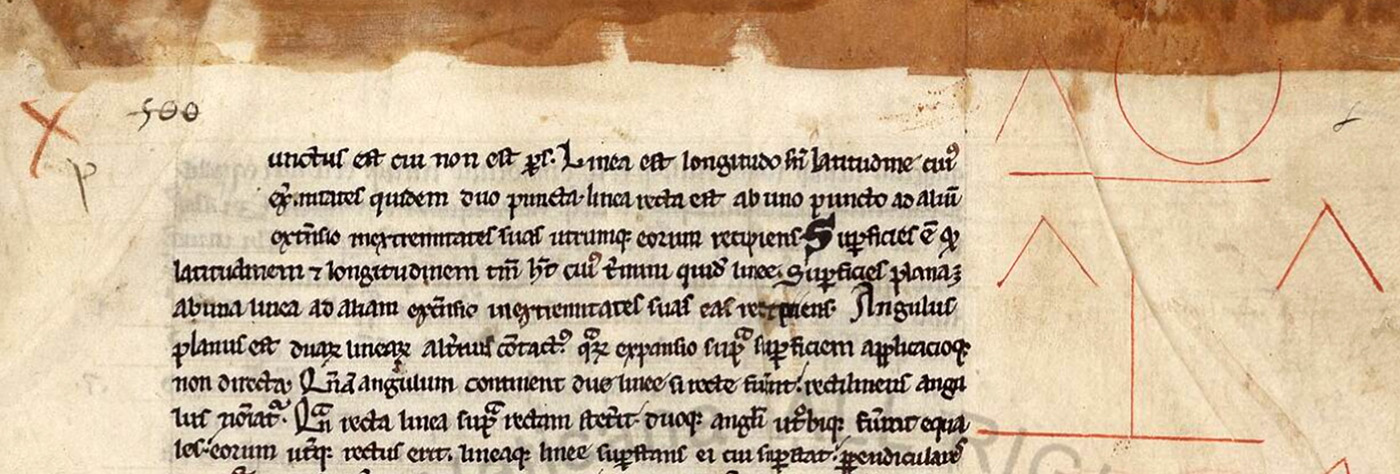 500
p
unctus est cui non est ꝑs. Linea est longitudo sn̄ latitudine cuiꝰ
ex̾mitates quidem duo puncta. linea recta est ab uno puncto ad aliū
extēnsio in extremitates suas utrumqꝫ eorum recipiens. Suꝑficies ē ꝙ
latitudinem ⁊ longitudinem tm̄ hꝫ cuiꝰ t̾mini quid̾ linee. Suꝑficies plana ē
ab una linea ad aliam extēnsio in extremitates suas eas recipiens. Angulus
planus est duaꝝ lineaꝝ alt̾ius cōtactꝰ quaꝝ expansio supͣ suꝑficiem applicacioqꝫ
non directa. Qn̄ aͫ angulum continent due linee si recte fūint: rectilineus angu
lus noīatᷣ. Qn̄ recta linea supͣ rectam stet̾it duoqꝫ angl̄i ut͛biqꝫ fūint equa
les: eorum ut̾qꝫ rectus erit. lineaqꝫ linee suꝑstans ei cui suꝑstat: ꝑpendicularis